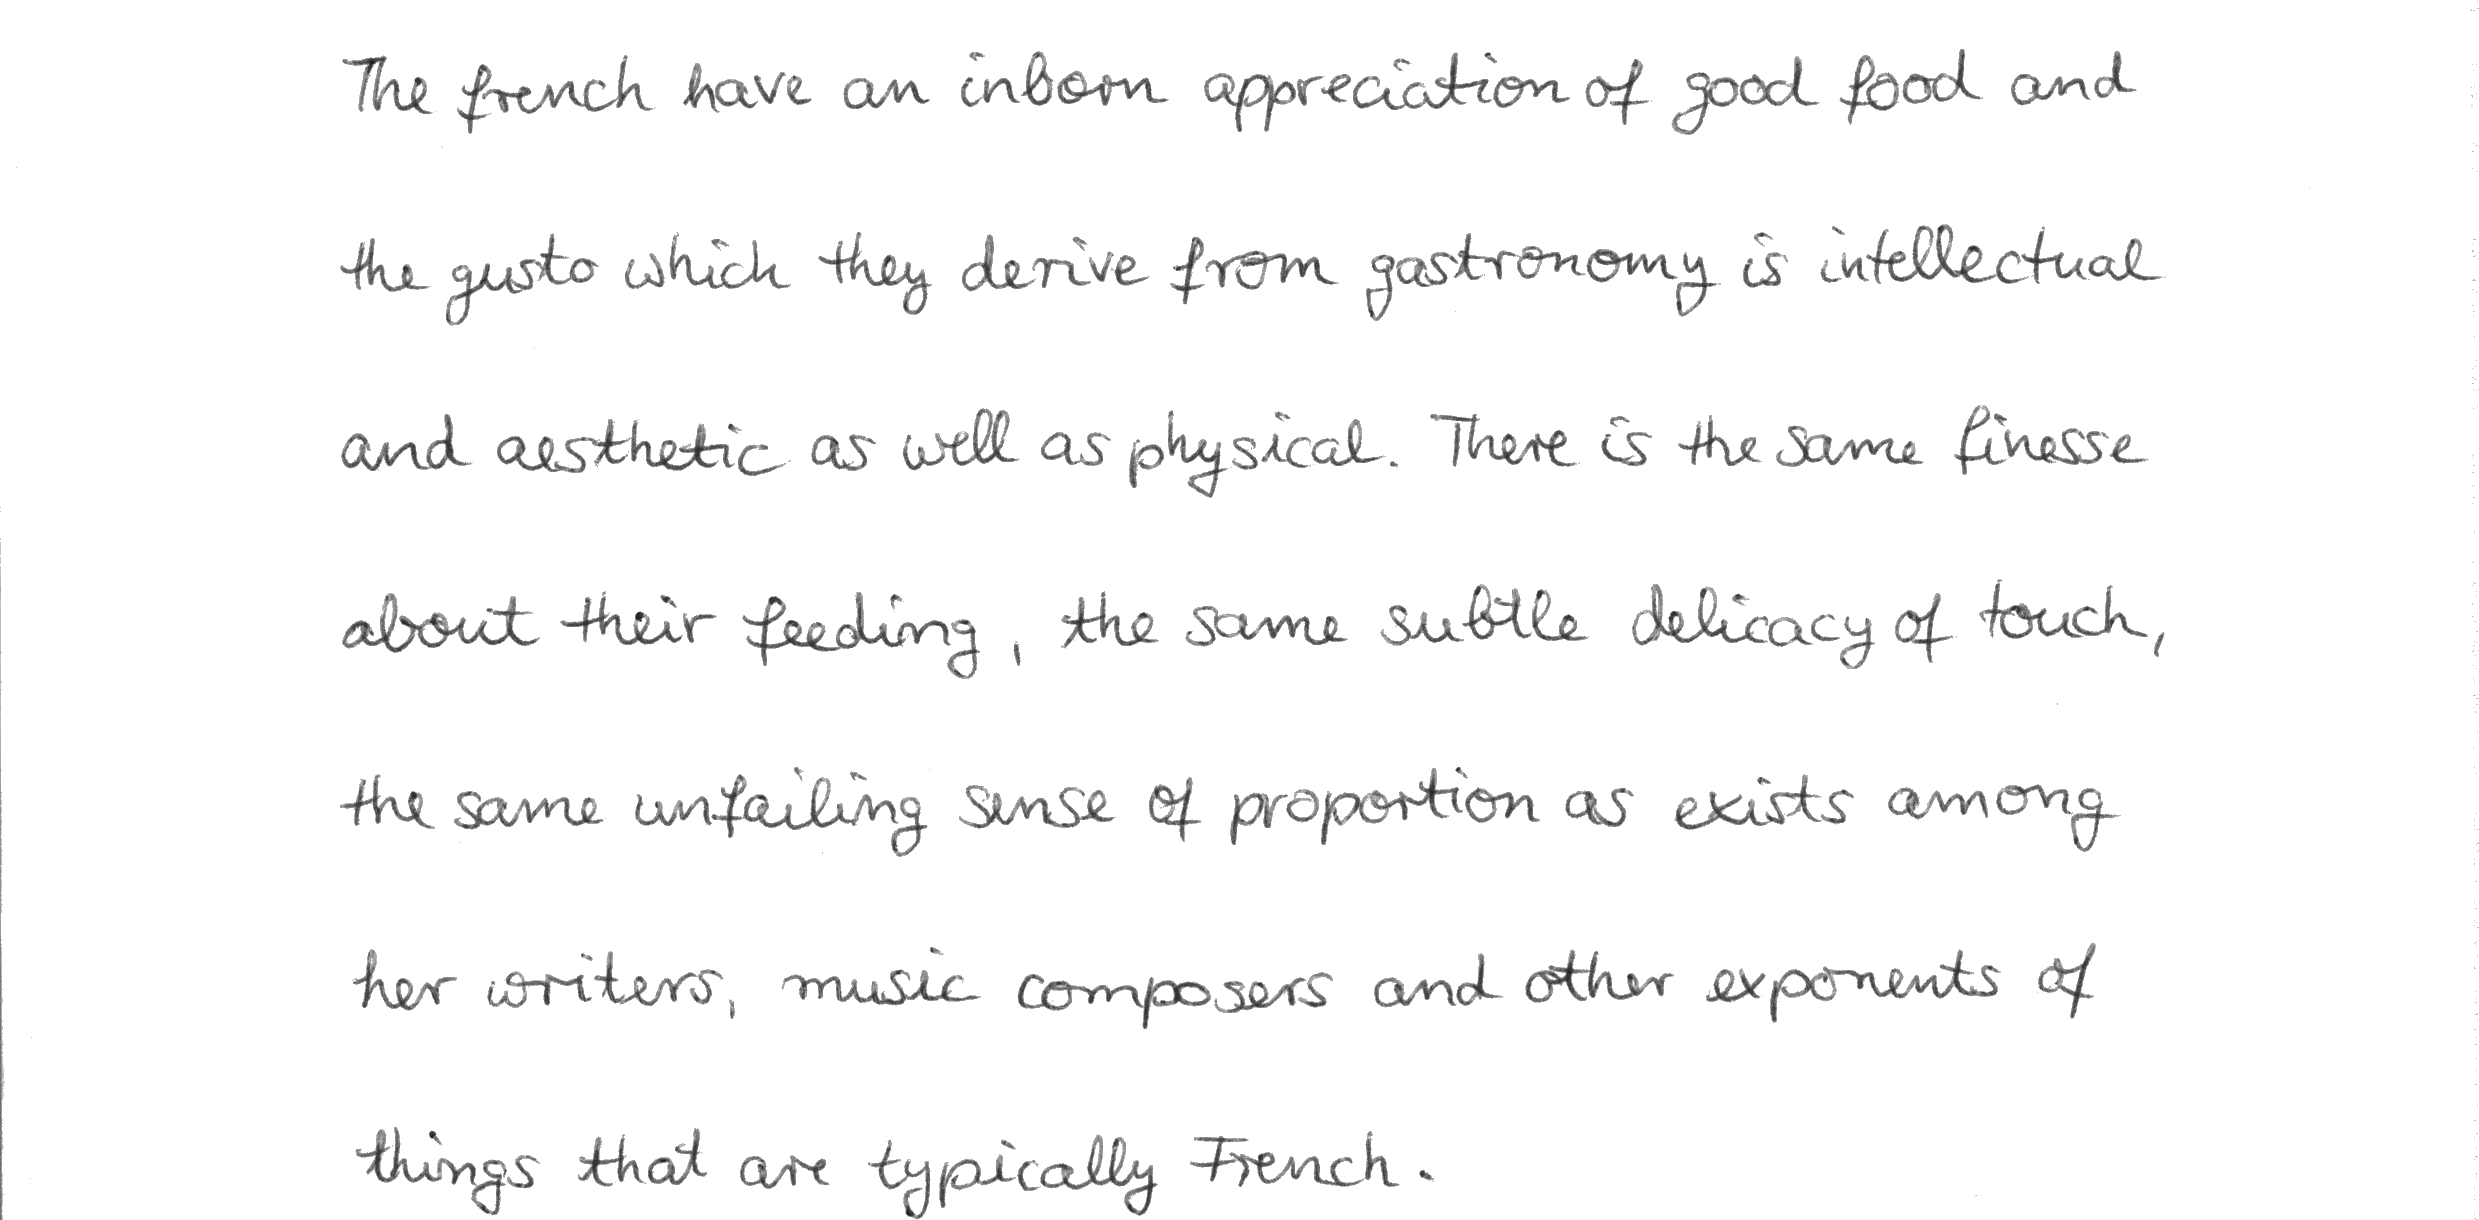 The french have an inborn appreciation of good food and
the gusto which they derive from gastronomy is intellectual
and aesthetic as well as physical. There is the same finesse
about their feeding, the same subtle delicacy of touch,
the same unfailing sense of proportion as exists among
her writers, music composers and other exponents of
things that are typically French.